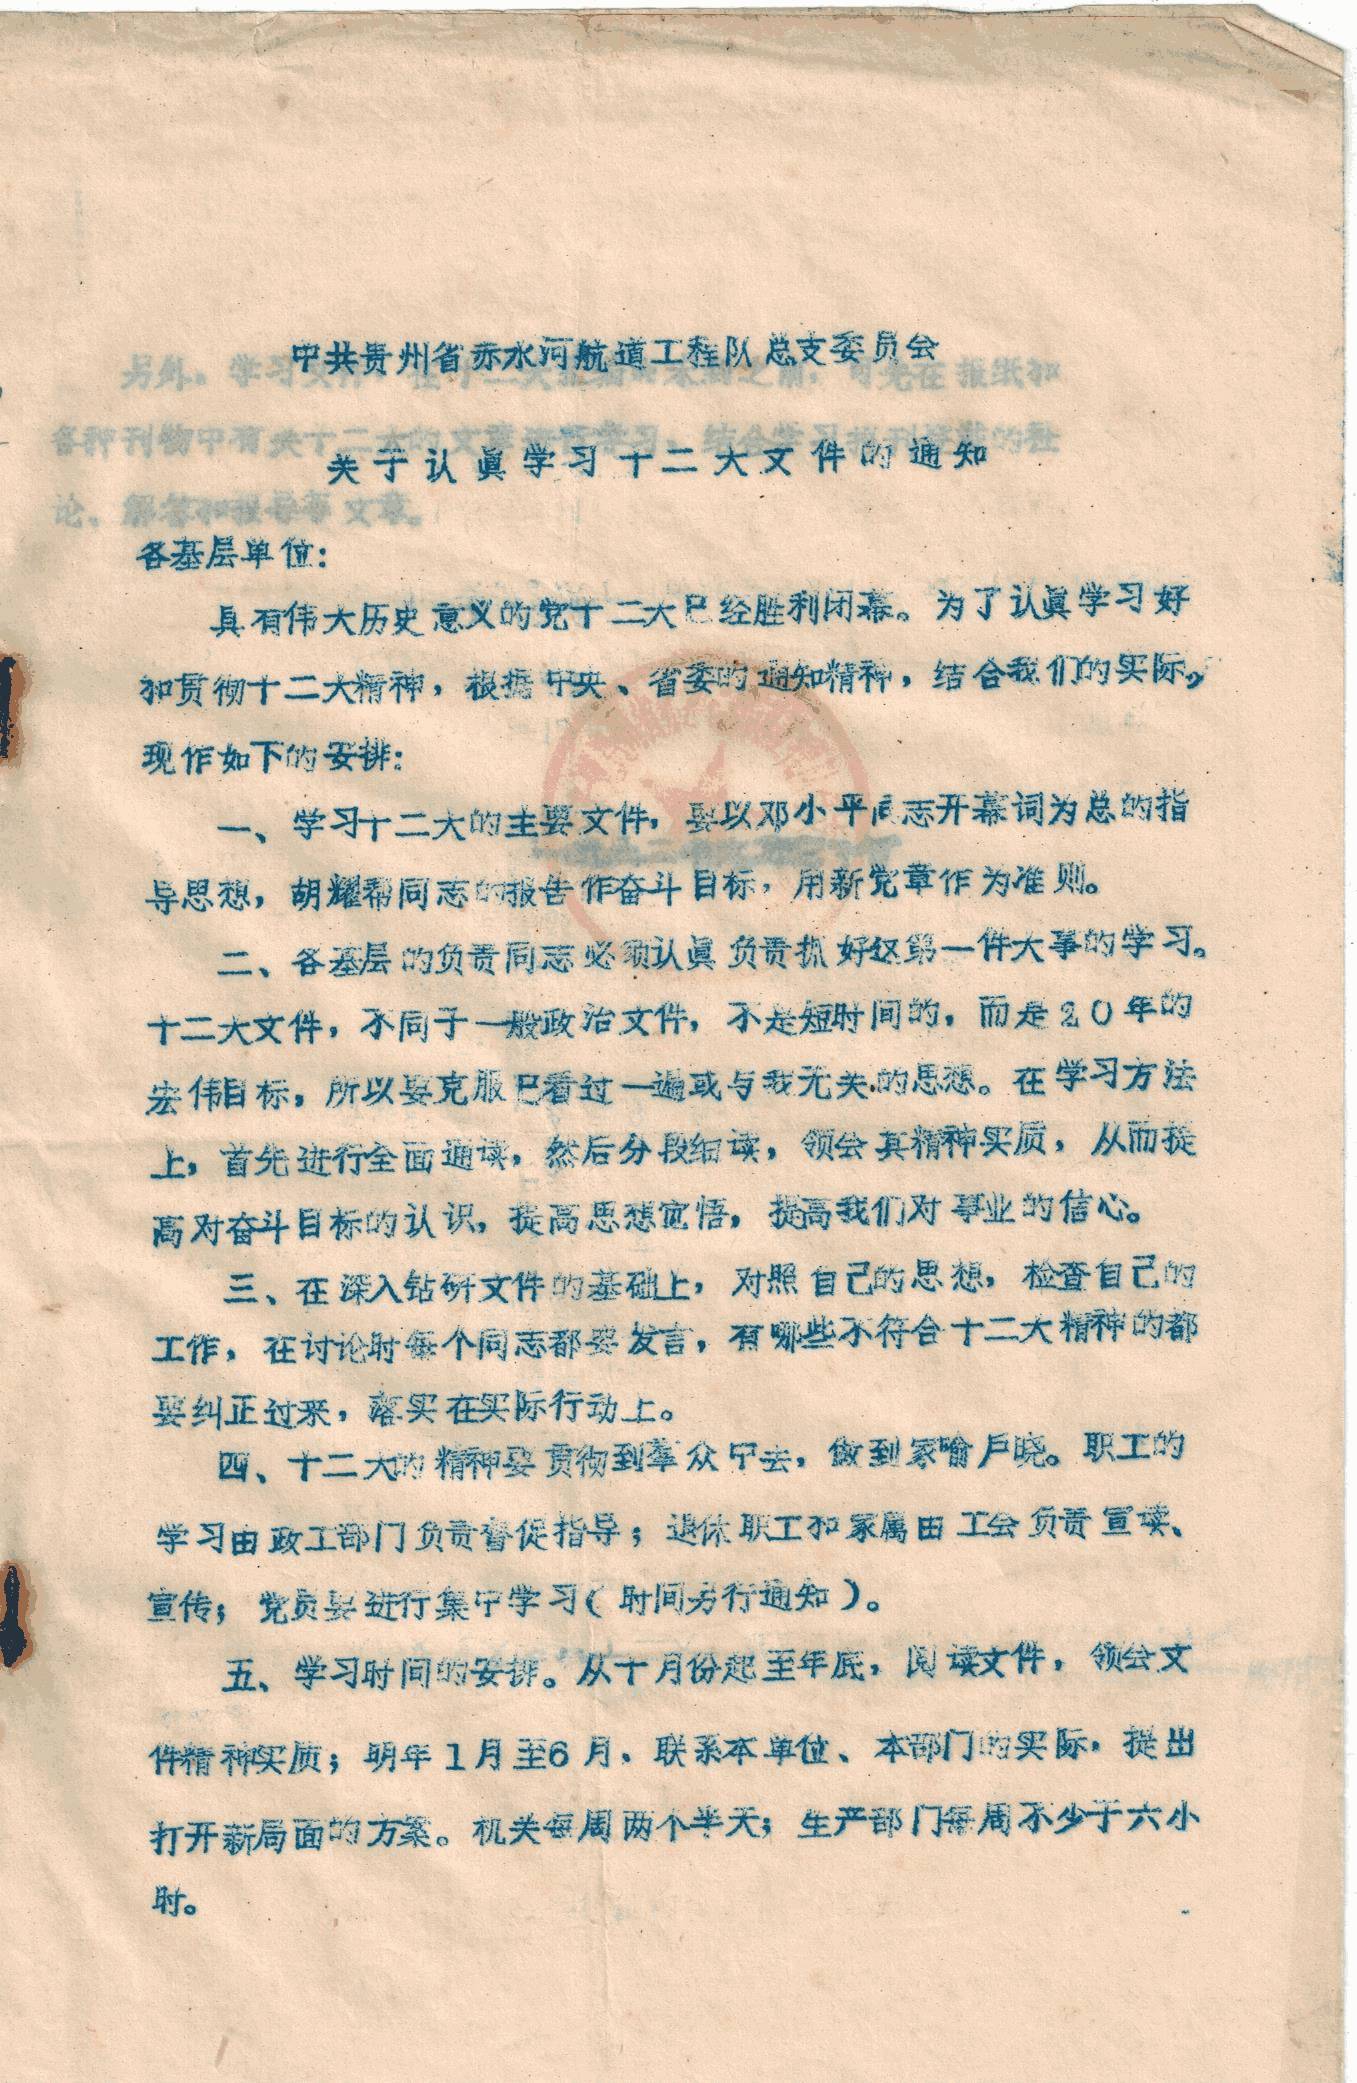 中共贵州省赤水河航道工程队总支委员会
关于认真学习十二大文件的通知
各基层单位：
具有伟大历史意义的党十二大已经胜利闭幕。为了认真学习好
和贯彻十二大精神，根据中央、省委的通知精神，结合我们的实际，
现作如下的安排：
一、学习十二大的主要文件，要以邓小平同志开幕词为总的指
导思想，胡耀帮同志的报告作奋斗目标，用新党章作为准则。
二、各基层的负责同志必须认真负责抓好这第一件大事的学习。
十二大文件，不同于一般政治文件，不是短时间的，而是20年的
宏伟目标，所以要克服已看过一遍或与我无关的思想。在学习方法
上，首先进行全面通读，然后分段细读，领会其精神实质，从而提
高对奋斗目标的认识，提高思想觉悟，提高我们对事业的信心。
三、在深入钻研文件的基础上，对照自己的思想，检查自己的
工作，在讨论时每个同志都要发言，有哪些不符合十二大精神的都
要纠正过来，落实在实际行动上。
四、十二大的精神要贯彻到羣众中去，做到家喻户晓。职工的
学习由政工部门负责督促指导；退休职工和家属由工会负责宣读、
宣传；党员要进行集中学习（时间另行通知）。
五、学习时间的安排。从十月份起至年底，阅读文件，领会文
件精神实质；明年1月至6月，联系本单位、本部门的实际，提出
打开新局面的方案。机关每周两个半天；生产部门每周不少于六小
时。